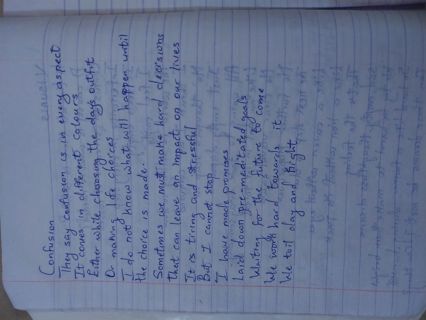 Confusion
They say confusion is in every aspect
It comes in different colours
Either while choosing the days outfit
Or making life choices
I do not know what will happen until
the choice is made.
Sometimes we must make hard decisions
that can leave an impact on our lives
It is tiring and stressful
But I cannot stop
I have made promises
Laid down pre-meditated goals
Waiting for the future to come
We work hard towards it
We toil day and night